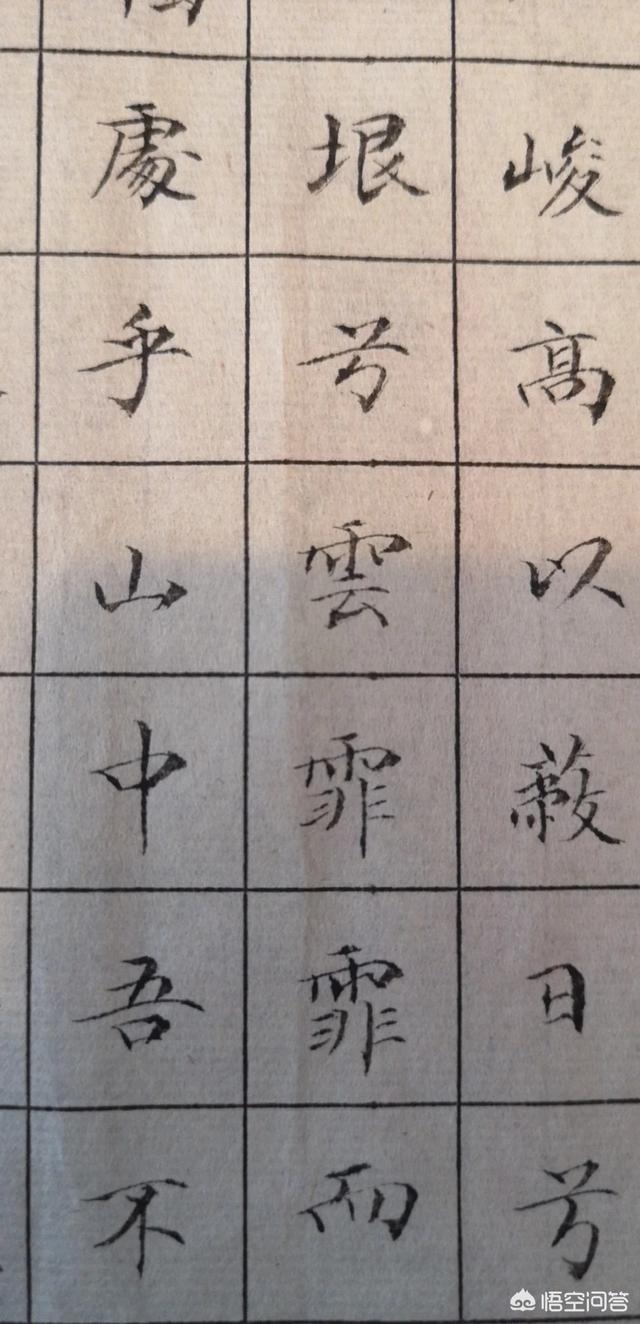 峻高以蔽日兮
垠兮雲霏霏而
處乎山中吾不
悟空问答